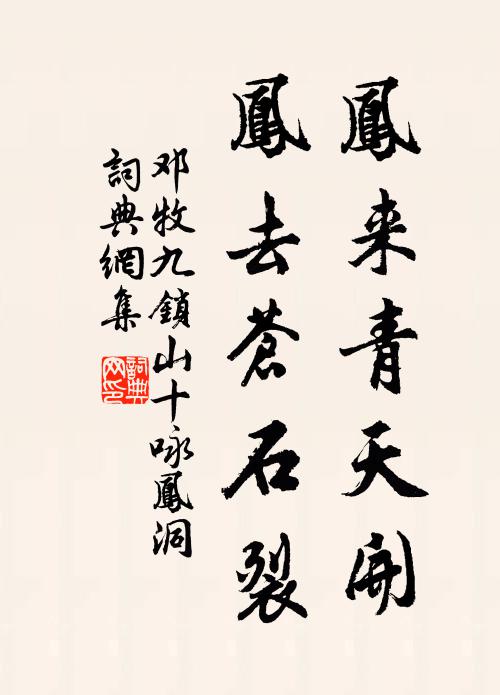 鳳来青天開
鳳去蒼石裂
邓牧九鎖山十咏鳳洞
詞典網集
詞典网印